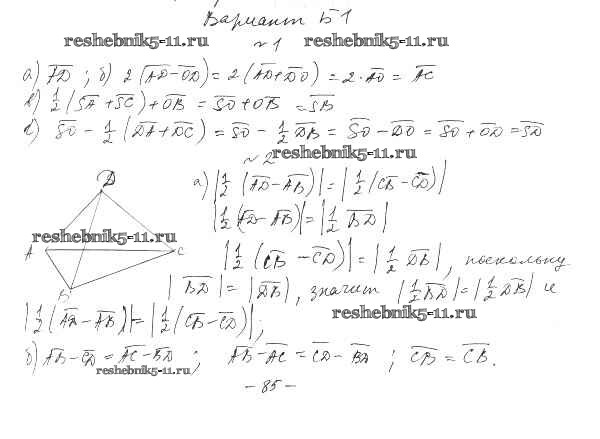 Вариант Б1
reshebnik5-11.ru № 1 reshebnik5-11.ru
а) FD; б) 2(AD-OD) = 2(AD+DO) = 2·AO = AC
в) 1/2 (SA+SC)+OB = SO+OB = SB
г) SO - 1/2 (DA+DC) = SO - 1/2 DB = SO-DO = SO+OD = SD
№ 2 reshebnik5-11.ru
D
а) |1/2 (AD-AB)| = |1/2 (CB-CD)|
|1/2 (AD-AB)| = |1/2 BD|
reshebnik5-11.ru
A C
|1/2 (CB-CD)| = |1/2 DB|, поскольку
B
|BD| = |DB|, значит |1/2 BD| = |1/2 DB| и
|1/2 (AD-AB)| = |1/2 (CB-CD)|; reshebnik5-11.ru
б) AB-CD = AC-BD; AB-AC = CD-BD; CB = CB.
reshebnik5-11.ru
- 85 -